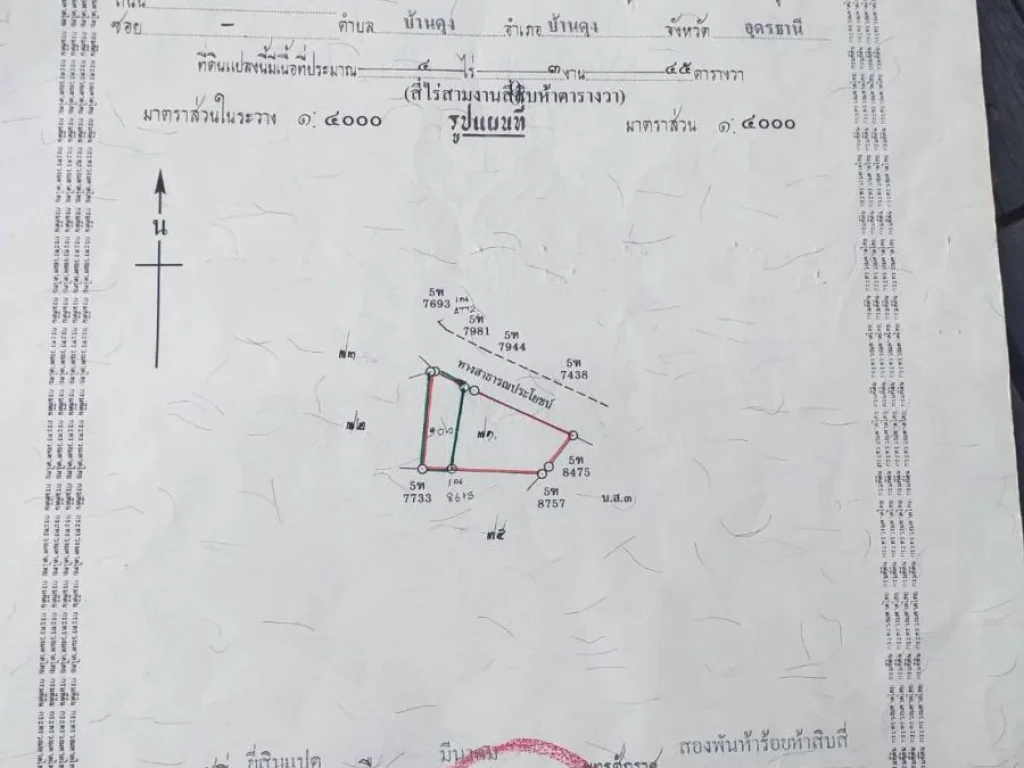 ถนน
ซอย – ตำบล บ้านดุง อำเภอ บ้านดุง จังหวัด อุดรธานี
ที่ดินแปลงนี้มีเนื้อที่ประมาณ ๔ ไร่ ๓ งาน ๔๕ ตารางวา
(สี่ไร่สามงานสี่สิบห้าตารางวา)
มาตราส่วนในระวาง ๑: ๔๐๐๐ รูปแผนที่ มาตราส่วน ๑: ๔๐๐๐
น
5ท
7693
5ท
7981
5ท
7944
5ท
7438
ทางสาธารณประโยชน์
๗๓
๗๒
๗๑
5ท
7733
8613
5ท
8475
5ท
8757
น.ส.๓
๗๕
ยี่สิบแปด มีนาคม สองพันห้าร้อยห้าสิบสี่